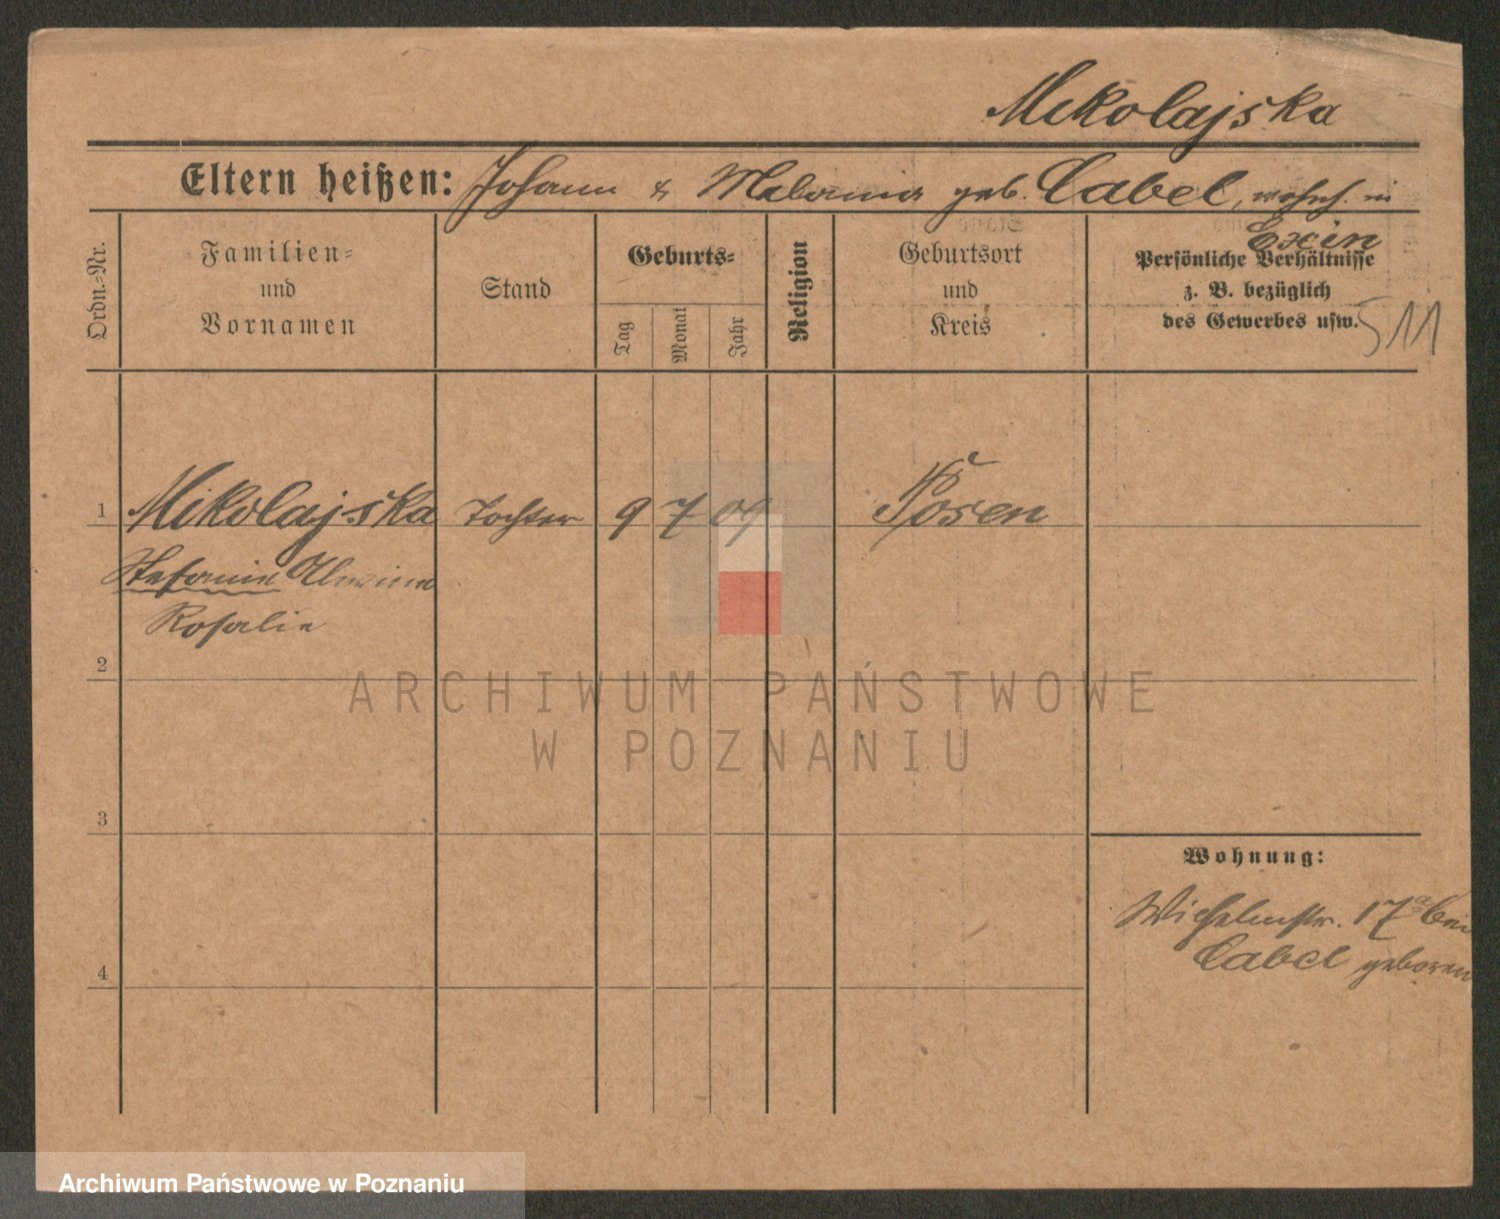 Mikolajska
Eltern heißen: Johann & Melania geb. Cabel, wohnh. in
Exin
Ordn.-Nr.
Familien-
und
Vornamen
Stand
Geburts-
Tag
Monat
Jahr
Religion
Geburtsort
und
Kreis
Persönliche Verhältnisse
z. B. bezüglich
des Gewerbes usw.
511
1 Mikolajska Tochter 9 7 09 Posen
Stefanie
Rosalie
2
ARCHIWUM PAŃSTWOWE
W POZNANIU
3
Wohnung:
Wilhelmstr. 17a bei
Cabel geboren
4
Archiwum Państwowe w Poznaniu